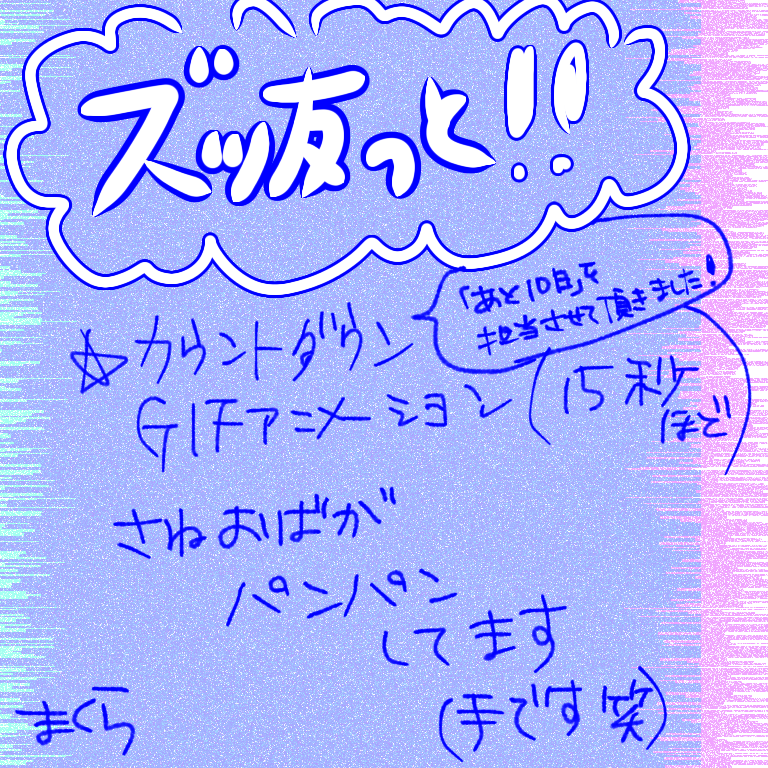 ズッ友っと!!
「あと10日」を
担当させて頂きました!
☆カウントダウン
GIFアニメーション(15秒
ほど)
さねおばが
パンパン
してます
(手です笑)
まくら